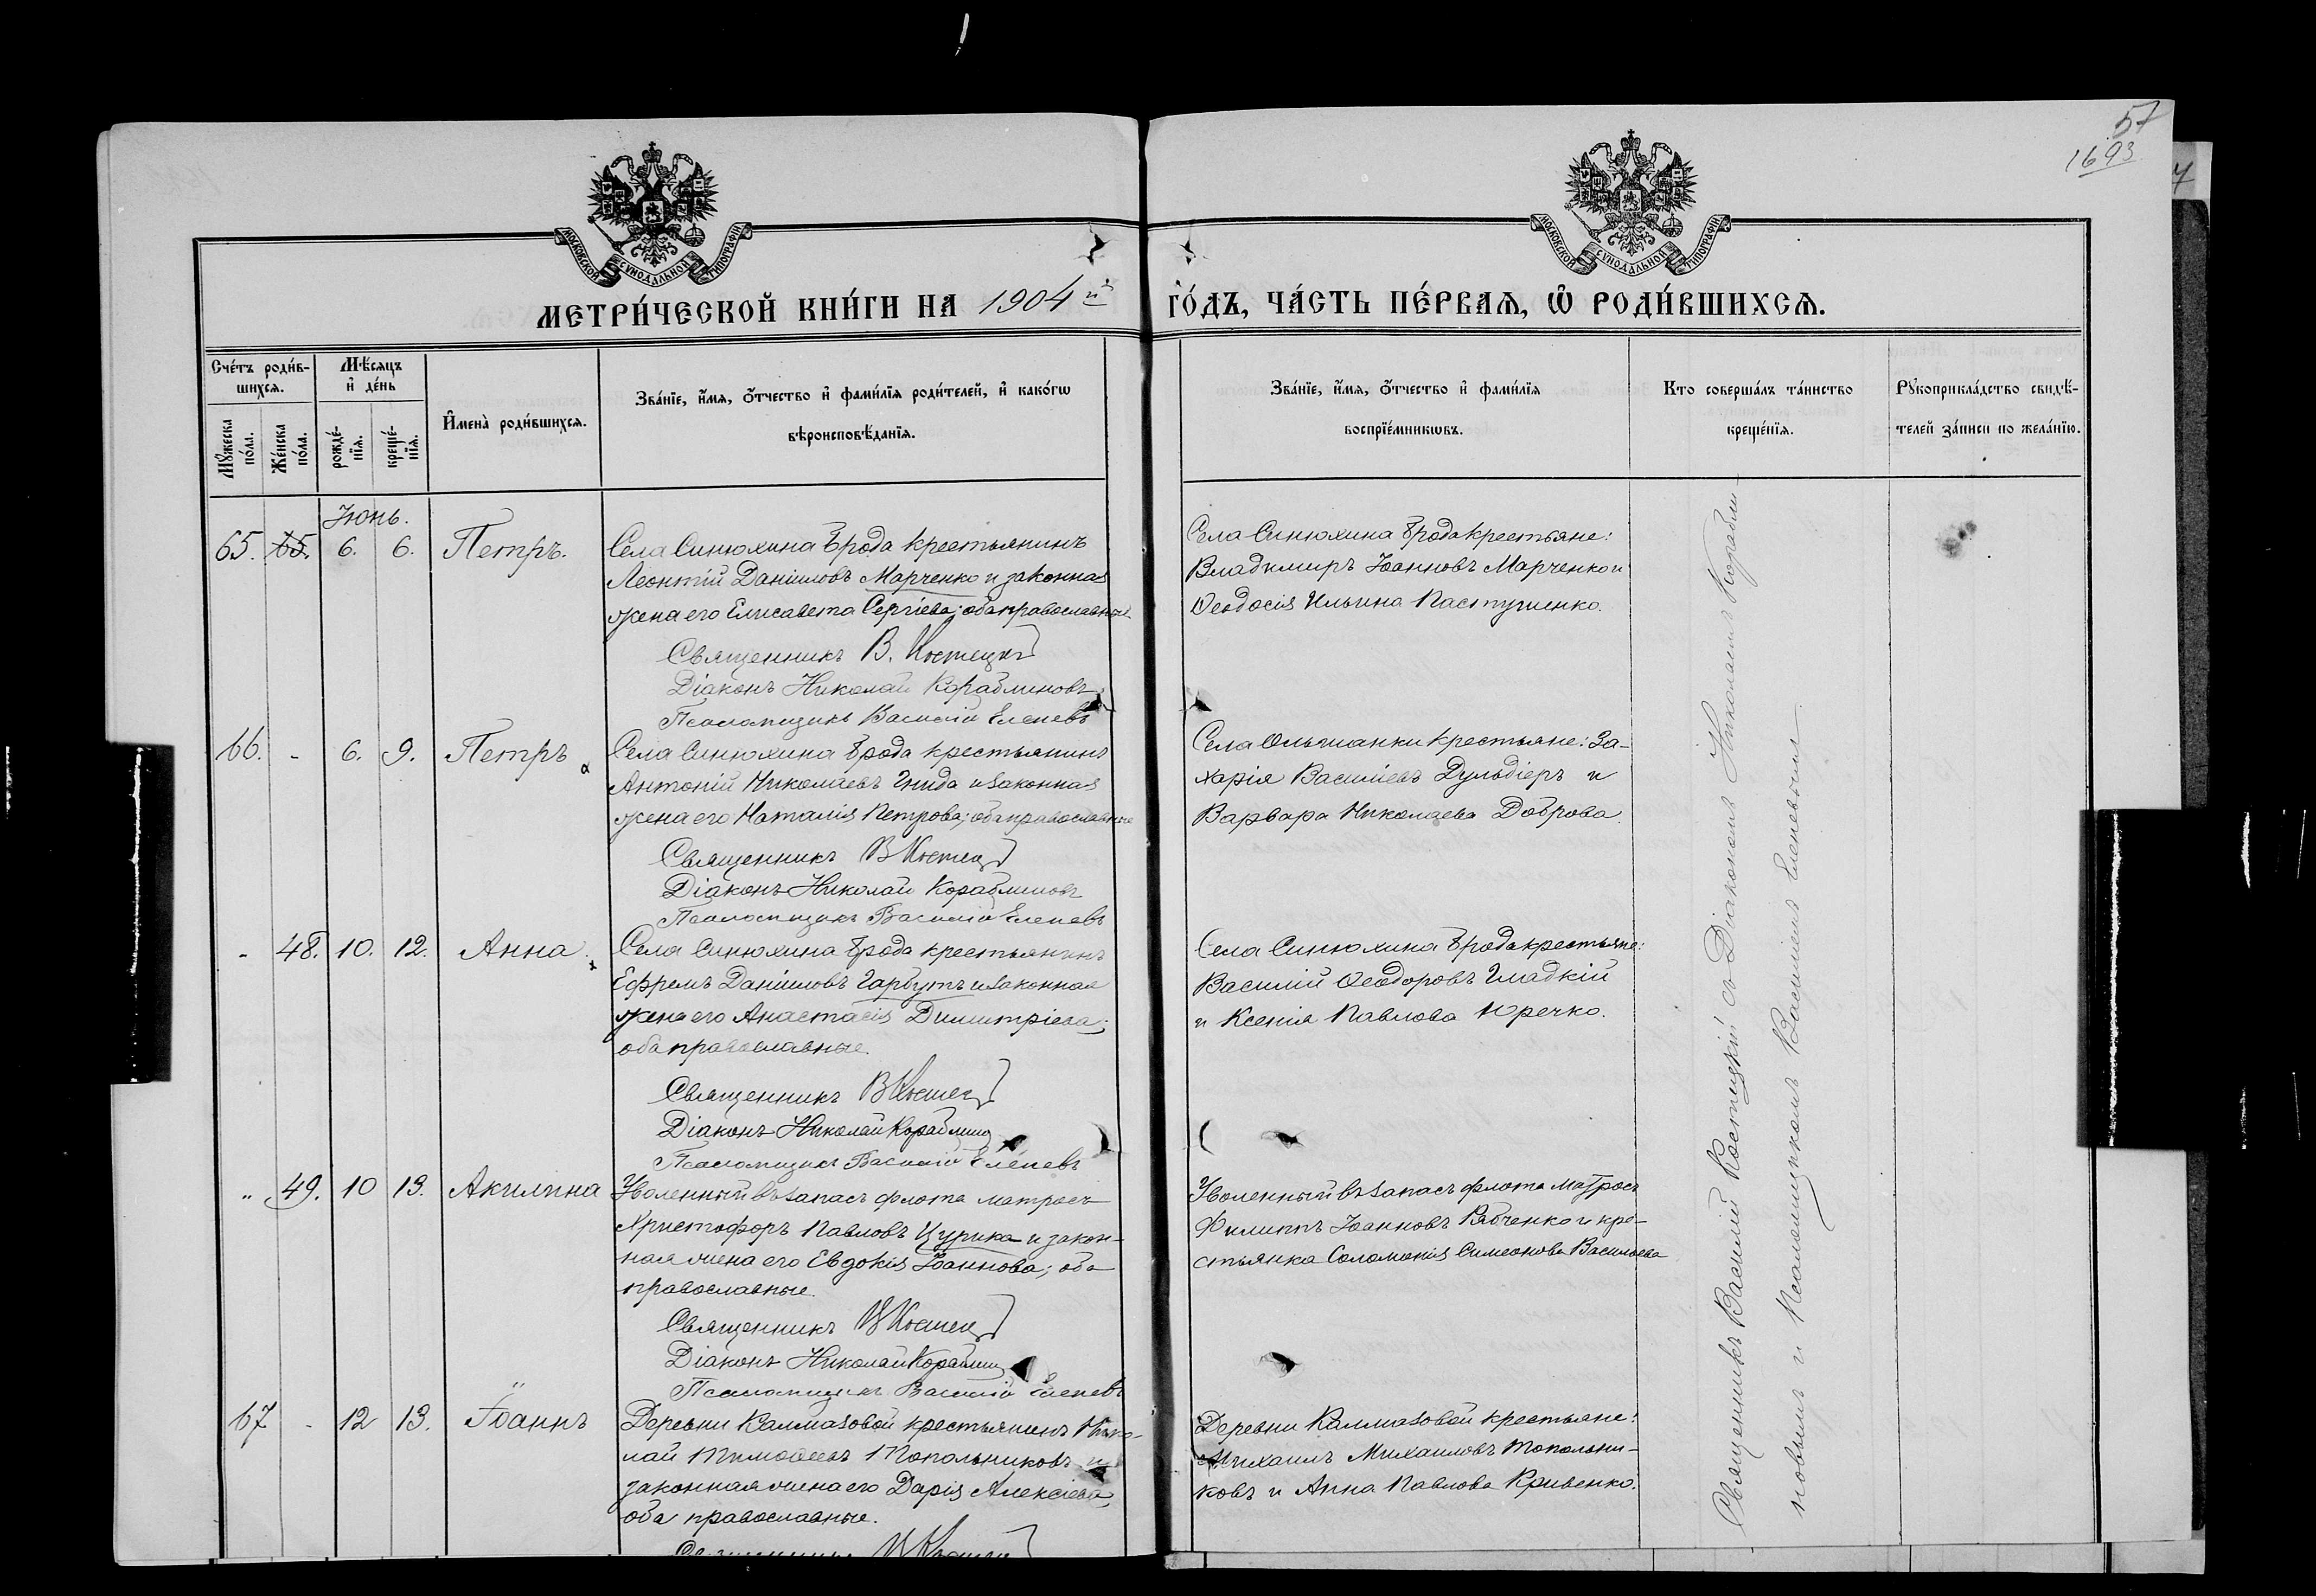 57
1693
МОСКОВСКОЙ СѴНОДАЛЬНОЙ ТИПОГРАФІИ
МОСКОВСКОЙ СѴНОДАЛЬНОЙ ТИПОГРАФІИ
МЕТРИ́ЧЕСКОЙ КНИ́ГИ НА 1904й
ГО́ДЪ, ЧА́СТЬ ПЕ́РВАЯ, Ѡ РОДИ́ВШИХСЯ.
Сче́тъ роди́в-
шихся.
Мꙋжеска по́ла.
Же́нска по́ла.
Мѣ́сяцъ
и де́нь
рожде́-
нїя.
креще́-
нїя.
Имена̀ роди́вшихся.
Зва́нїе, и́мя, о́тчество и фами́лїя роди́телей, и како́гѡ
вѣроисповѣ́данїя.
Зва́нїе, и́мя, о́тчество и фами́лїя
воспрїе́мникѡвъ.
Кто соверша́лъ та́инство
креще́нїя.
Рꙋкоприкла́дство свидѣ́-
телей за́писи по жела́нїю.
Іюнь.
65. 65. 6. 6. Петръ.
Села Синюхина Брода крестьянинъ
Леонтій Даніиловъ Марченко и законная
жена его Елисавета Сергіева; оба православные
Священникъ В. Костецкій
Діаконъ Николай Кораблиновъ
Псаломщикъ Василій Еленевъ
Села Синюхина Брода крестьяне:
Владимиръ Іоанновъ Марченко и
Ѳеодосія Ильина Пастушенко.
66. - 6. 9. Петръ
Села Синюхина Брода крестьянинъ
Антоній Николаевъ Гнида и законная
жена его Наталія Петрова; оба православные
Священникъ В Костец
Діаконъ Николай Кораблиновъ
Псаломщикъ Василій Еленевъ
Села Ольшанки крестьяне: За-
харія Василіевъ Дульдіеръ и
Варвара Николаева Доброва.
- 48. 10. 12. Анна
Села Синюхина Брода крестьянинъ
Ефремъ Даніиловъ Гарбутъ и законная
жена его Анастасія Димитріева;
оба православные.
Священникъ В Костец
Діаконъ Николай Кораблин
Псаломщикъ Василій Еленевъ
Села Синюхина Брода крестьяне:
Василій Ѳеодоровъ Гладкій
и Ксенія Павлова Юречко.
" 49. 10 13. Акилина
Уволенный въ запасъ флота матросъ
Христофоръ Павловъ Цурика и закон-
ная жена его Евдокія Іоаннова; оба
православные.
Священникъ В Костец
Діаконъ Николай Кораблин
Псаломщикъ Василій Еленевъ
Уволенный въ запасъ флота матросъ
Филиппъ Іоанновъ Рябченко и кре-
стьянка Соломонія Симеонова Васильева
67 - 12 13. Іоаннъ
Деревни Калмазовой крестьянинъ Нико-
лай Тимоѳеевъ Топольниковъ и
законная жена его Дарія Алексіева,
оба православные.
Деревни Калмазовой крестьяне:
Михаилъ Михаиловъ Топольни-
ковъ и Анна Павлова Кривенко.
Священникъ Василій Костецкій съ Діакономъ Николаемъ Корабли
новымъ и Псаломщикомъ Василіемъ Еленевымъ.